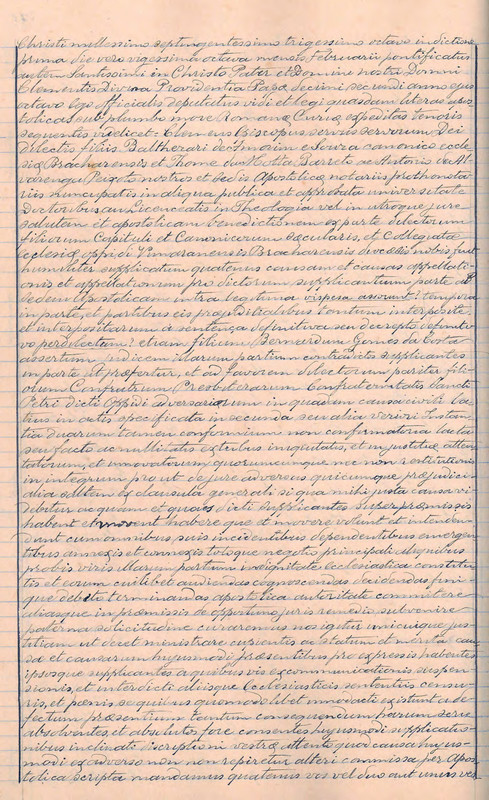 Christi millessimo septingentessimo trigessimo octavo indictione
prima die vero vigessima octava mensis februarii pontificatus
autem Santissimi in Christo Pater et Domine nostri Domni
Clementis Divina Providentia Papæ decimi secundi anno ejus
octavo Ego officialis deputatus vidi et legi quasdam literas apos
tolicas sub plumbo more Romanæ Curiæ expeditas tenoris
sequentis videlicet: Clemens Episcopus servus servorum Dei
Dilectis filiis Balthezari de Amorim e Souza canonico eccle
siæ Bracharensis et Thome da Motta Barreto ac Antonio de Al
varenga Peixoto nostros et sedis Apostolicæ notariis prothonota
riis nuncupatis in aliqua publica et approbata universitate
Doctoribus aut Licenceatis in Theologia vel in utroque jure
salutem et apostolicam benedictionem ex parte dilectorum
filiorum Capituli et Canonicorum secularis, et Collegiata
Ecclesiæ oppidi Vimaranensis Bracharensis diocædis nobis fuit
humiliter supplicatum quatenus causam et causas appellati-
onis et appellationum pro dictorum supplicantium parte ad
sedem Apostolicam intra legitima tempora
in parte, et partibus eis præjuditialibus tantum interposite
et interpositarum à sentença definitiva seu decreto definiti
vo per dilectum? etiam filium Bernardum Gomes da Costa
assertum judicem illarum partium contra dictos supplicantes
in parte ut præfertur, et ad favorem dilectorum pariter fili-
orum Confratrum Presbiterarum Confraternitatis Sancti
Petri dicti Oppidi adversariorum in quadam causa civili la
trius in actis specificata in secunda seu alia veriori Instan
tia duarum tamen conformium non confirmatoria lata
seu facto ac nullitatis extubus iniquitatis, et injustitiæ atten
tatorum, et innovatorum quorumcumque nec non restitutionis
in integrum pro ut de jure adversus quicumque præjudici-
alia saltem ex clausula generali si qua mihi justa causa vi
debitur ac quam et quas dicti supplicantes super præmissis
habent et movent habere que et movere volunt et intenden
dunt cum omnibus suis incidentibus dependentibus emergen
tibus annexis et connexis totoque negotio principali aliquibus
probis viris illarum partium in dignitate ecclesiastica constitu
tis et eorum cuilibet audiendas cognoscendas decidendas fini
que debito terminandas apostolica autoritate committere
aliasque in præmissis de opportuno juris remedio subvenire
paterna solicitudine curaremus nos igitur unicuique jus-
titiam ut decet ministrare cupientes ac statum et merita cau
sa et causarum hujusmodi præsentibus pro expressis habentes
ipsosque supplicantes a quibusvis excommunicationis suspen
sionis, et interdicti aliisque Ecclesiasticis sententiis censu
ris, et penis se quibus quomodolibet innodacti existunt ad e-
fectum præsentium tantum consequendum harum serie
absolventes, et absolutos fore censentes hujusmodi supplicatio-
nibus inclinati discriptioni vestræ attento quod causa hujus-
modi ex adverso non reperitur alteri commissa per Apos
tolica scripta mandamus quatenus vos vel duo aut unus ves